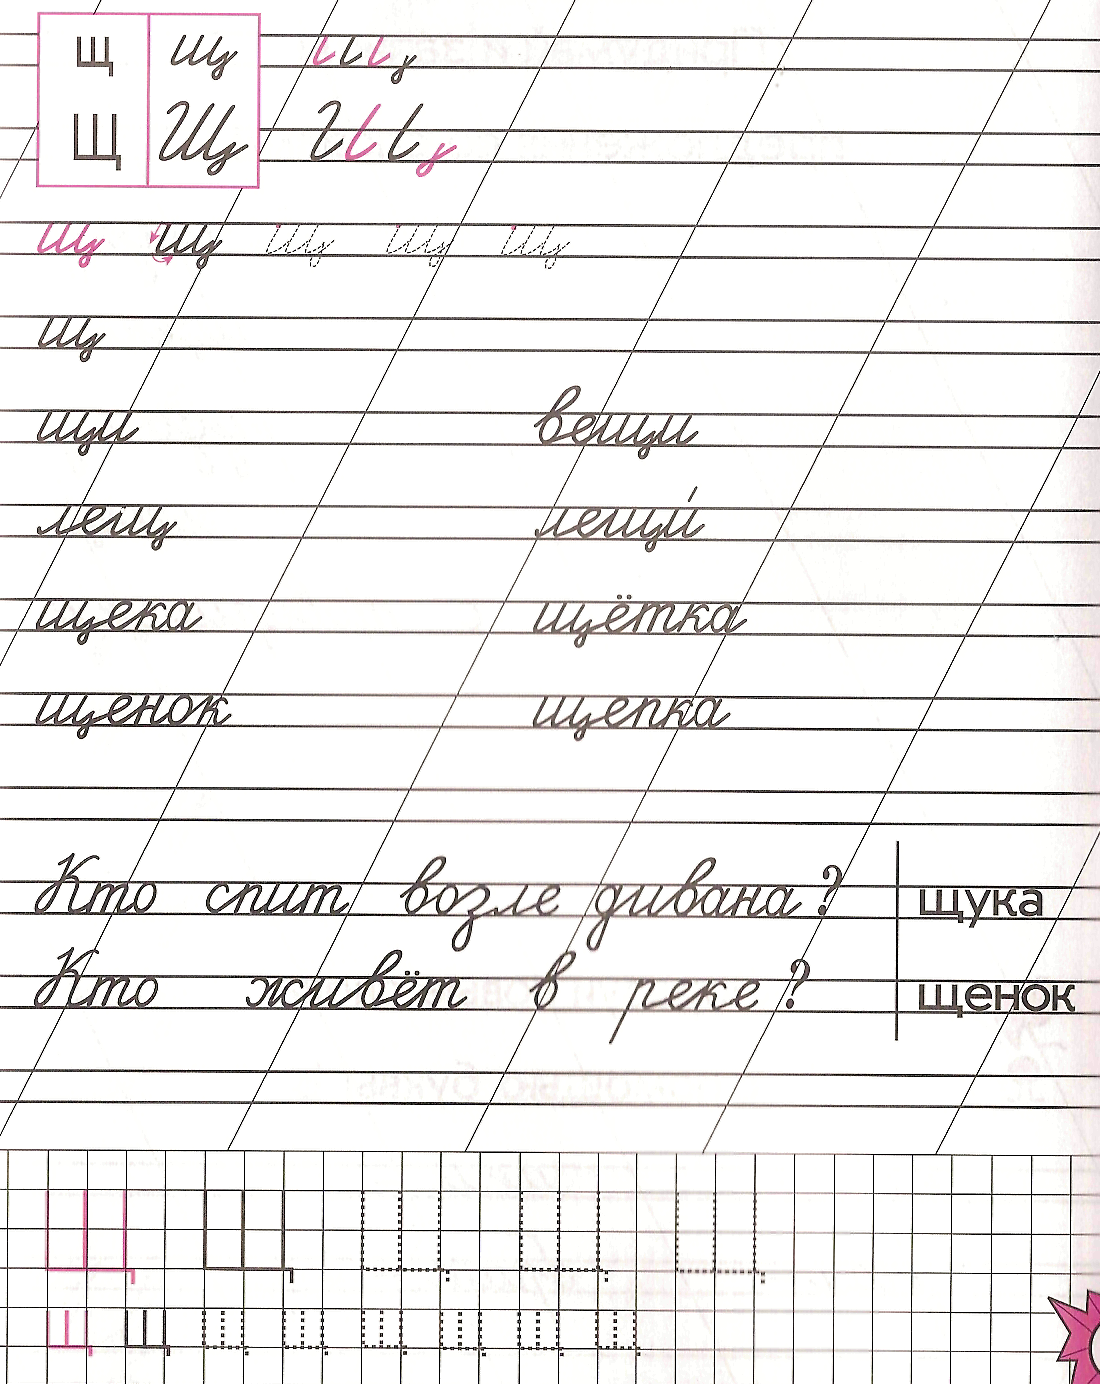 щ щ
Щ Щ
щ щ щ щ щ
щ
щи вещи
лещ лещи́
щека щётка
щенок щепка
Кто спит возле дивана? щука
Кто живёт в реке? щенок
Щ Щ Щ Щ Щ
щ щ щ щ щ щ щ щ